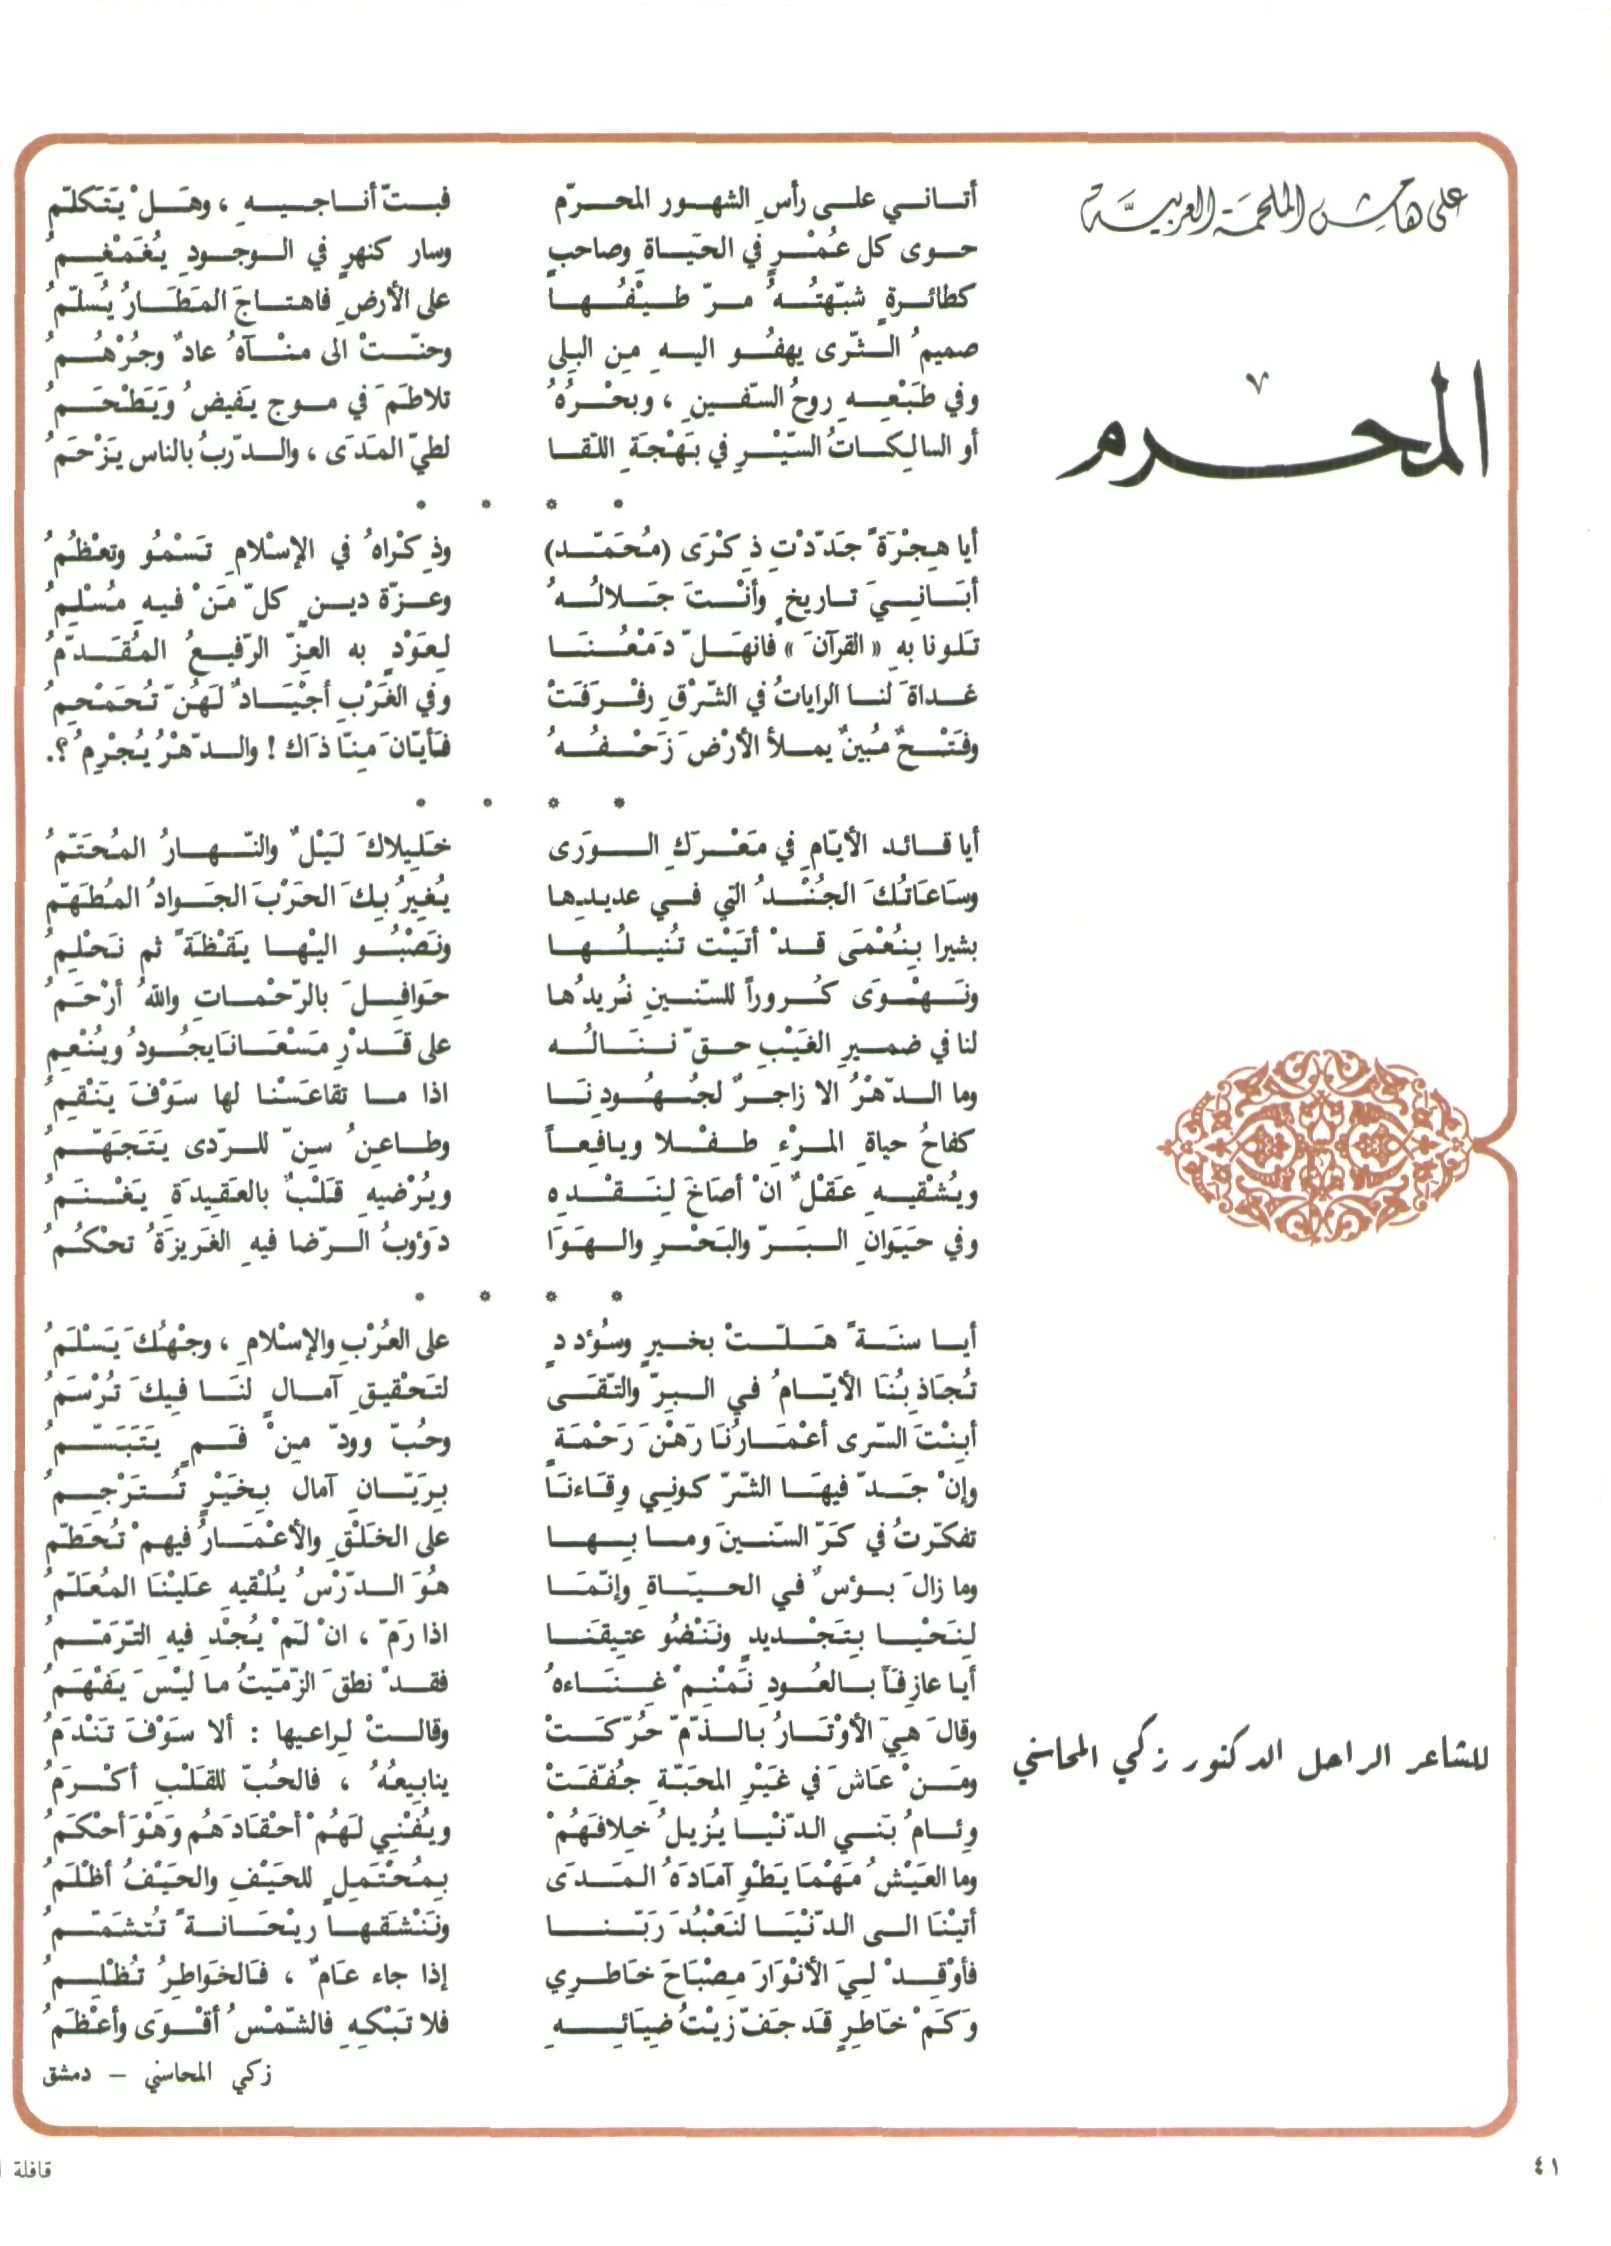 على هامش الملحمة العربيَّة
المحرم
للشاعر الراحل الدكتور زكي المحاسني
أتاني على رأسِ الشهور المحرّم فبتّ أناجيهِ ، وهَلْ يَتَكلّمُ
حوى كل عُمْرٍ في الحَيَاةِ وصاحبٍ وسار كنهرٍ في الوجودِ يُغَمْغِمُ
كطائرةٍ شبّهتُهُ مرّ طيْفُها على الأرضِ فاهتاجَ المَطَارُ يُسلّمُ
صميمُ الثّرى يهفُو اليهِ مِن البلِى وحنّتْ الى منْآهُ عادٌ وجُرْهُمُ
وفي طَبْعِهِ روحُ السّفينِ ، وبحْرُهُ تلاطَمَ في موج يَفيضُ وَيَطْحَمُ
أو السالِكاتُ السّيْرِ في بَهْجَةِ اللّقا لطيّ المَدَى ، والدّربُ بالناس يَزْحَمُ
* * * *
أيا هِجْرَةً جَدّدْتِ ذِكْرَى (مُحَمّد) وذِكْراهُ في الإسْلامِ تَسْمُو وتعْظُمُ
أبَانِيَ تاريخٍ وأنْتَ جَلالُهُ وعزّة دينٍ كلّ مَنْ فيهِ مُسْلِمُ
تَلونا بهِ « القرآنَ » فانهَلّ دَمْعُنَا لِعَوْدٍ به العِزّ الرّفيعُ المُقَدّمُ
غداةَ لنا الراياتُ في الشّرْقِ رفْرَفَتْ وفي الغَرْبِ أجْيَادٌ لَهُنّ تُحَمْحِمُ
وفَتْحٌ مُبينٌ يملأ الأرْضَ زَحْفُهُ فأيّانَ مِنّا ذَاك ! والدّهْرُ يُجْرِمُ ؟.
* * * *
أيا قائد الأيّامِ في مَعْرَكِ الوَرَى خَلِيلاكَ لَيْلٌ والنّهارُ المُحَتّمُ
وسَاعَاتُكَ الجُنْدُ التي في عديدِها يُغِيرُ بِكَ الحَرْبَ الجَوادُ المُطَهّمُ
بشيرا بِنُعْمَى قدْ أتَيْت تُنيلُها ونَصْبُو اليْها يَقْظَةً ثم نَحْلِمُ
ونَهْوَى كُروراً للسّنينِ نُريدُها حَوَافِلَ بالرّحْماتِ واللهُ أرْحَمُ
لنا في ضميرِ الغَيْبِ حقّ نَنَالُه على قَدْرِ مَسْعَانَا يجُودُ ويُنْعِمُ
وما الدّهْرُ الا زاجرٌ لجُهُودِنَا اذا ما تقاعَسْنا لها سَوْفَ يَنْقِمُ
كفاحُ حياةِ المرْءِ طفْلا ويافِعاً وطاعِنُ سِنّ للرّدى يَتَجَهّمُ
ويُشْقيهِ عَقْلٌ انْ أصَاخَ لِنَقْدِه ويُرْضيهِ قَلْبٌ بالعَقِيدَةِ يَغْنَمُ
وفي حَيَوَانِ البَرّ والبَحْرِ والهَوَا دَؤوبُ الرّضا فيهِ الغَرِيزَةُ تحْكُمُ
* * * *
أيا سنَةً هَلّتْ بخيرٍ وسُؤددٍ على العُرْبِ والإسْلامِ ، وجْهُكَ يَسْلَمُ
تُجَاذِبُنَا الأيّامُ في البرّ والتّقَى لتَحْقيقِ آمالٍ لنَا فِيكَ تُرْسَمُ
أبِنْتَ السّرى أعْمَارُنَا رَهْنَ رَحْمَةٍ وحُبّ وودّ مِنْ فَمٍ يَتَبَسّمُ
وإنْ جَدّ فيهَا الشّرّ كونِي وِقَاءنَا بِرَيّانِ آمال بِخَيْرٍ تُتَرْجِمُ
تفكّرتُ في كَرّ السّنينَ وما بِها على الخَلْقِ والأعْمَارُ فيهمْ تُحَطّمُ
وما زالَ بؤسٌ في الحيَاةِ وإنّمَا هُوَ الدّرْسُ يُلْقيهِ عَلَيْنَا المُعَلّمُ
لِنَحْيا بِتَجْديدٍ ونَنْضُو عتِيقَنا اذا رَمّ ، انْ لَمْ يُجْدِ فيهِ التّرَمّمُ
أيا عازِفاً بالعُودِ نَمْنِمْ غِنَاءهُ فقدْ نطقَ الزّمّيتُ ما ليْسَ يَفْهَمُ
وقالَ هيَ الأوْتَارُ بالذّمّ حُرّكَتْ وقالتْ لِراعيها : ألا سَوْفَ تَنْدَمُ
ومَنْ عَاشَ في غَيْرِ المحَبّةِ جُفّفَتْ ينابِيعُهُ ، فالحُبّ للقَلْبِ أكْرَمُ
وِئامُ بَني الدّنْيا يُزيلُ خِلافَهُمْ ويُفْنِي لَهُمْ أحْقَادَهُم وَهْوَ أحْكَمُ
وما العَيْشُ مَهْمَا يَطْوِ آمَادَهُ المَدَى بِمُحْتَملٍ للحَيْفِ والحَيْفُ أظْلَمُ
أتيْنَا الى الدّنْيَا لنَعْبُدَ رَبّنا ونَنْشَقها ريْحَانةً تُتشَمّمُ
فأوْقِدْ لِيَ الأنْوَارَ مِصْبَاحَ خَاطري إذا جاء عَامٌ ، فَالخَواطِرُ تُظْلِمُ
وَكَمْ خَاطِرٍ قَد جَفّ زيْتُ ضِيَائِهِ فلا تَبْكِهِ فالشّمْسُ أقْوَى وأعْظَمُ
زكي المحاسني – دمشق
٤١
قافلة